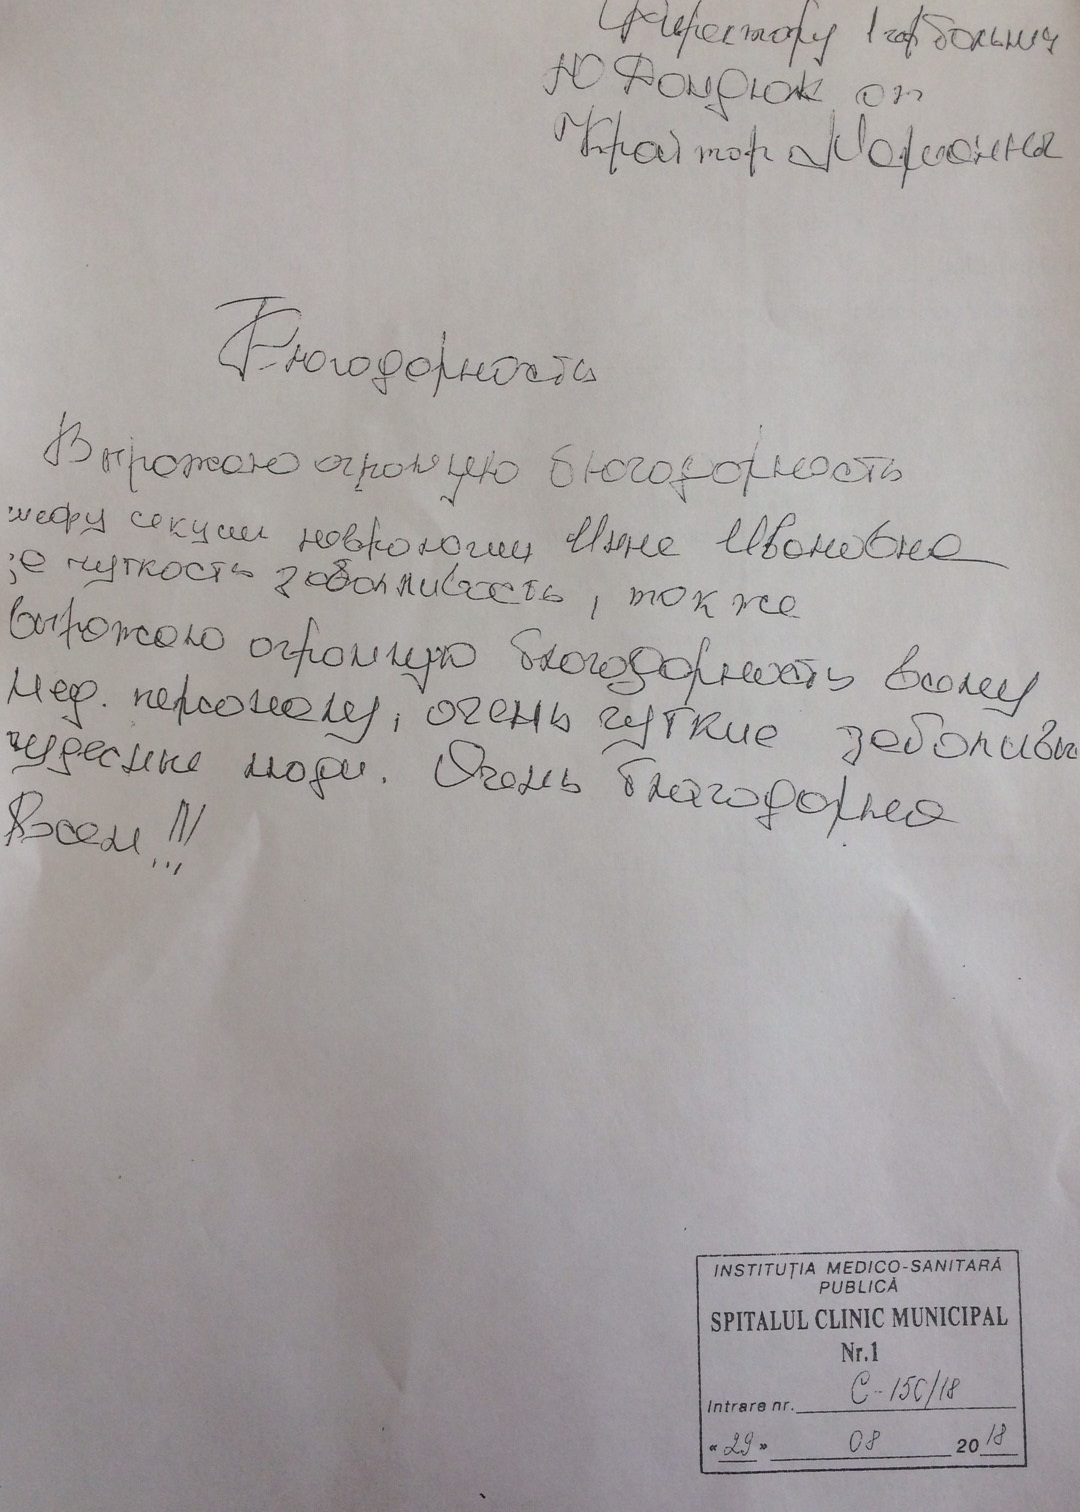 Директору 1 гор больниц
Ю Дондюк от
Крайтор Марианна
Благодарность
Выражаю огромную благодарность
шефу секции неврологии Инне Ивановне
за чуткость заботливость, также
выражаю огромную благодарность всему
мед. персоналу, очень чуткие заботливы
чудесные люди. Очень благодарна
Всем!!!
INSTITUȚIA MEDICO-SANITARĂ
PUBLICĂ
SPITALUL CLINIC MUNICIPAL
Nr.1
Intrare nr. C-150/18
«29» 08 2018